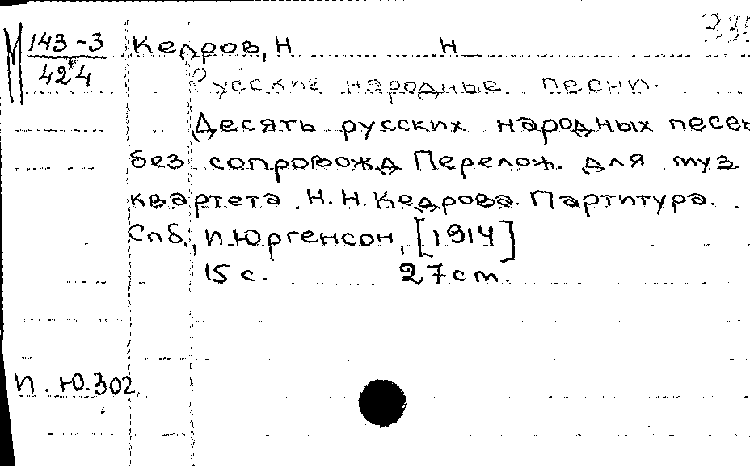 М 143-3 Кедров, Н Н
42*4 Русские народные песни.
Десять русских народных песен
без сопровожд Перелож. для муз
квартета. Н. Н. Кедрова. Партитура.
Спб., П. Юргенсон, [1914]
15 с. 27 cm.
П. Ю. 302